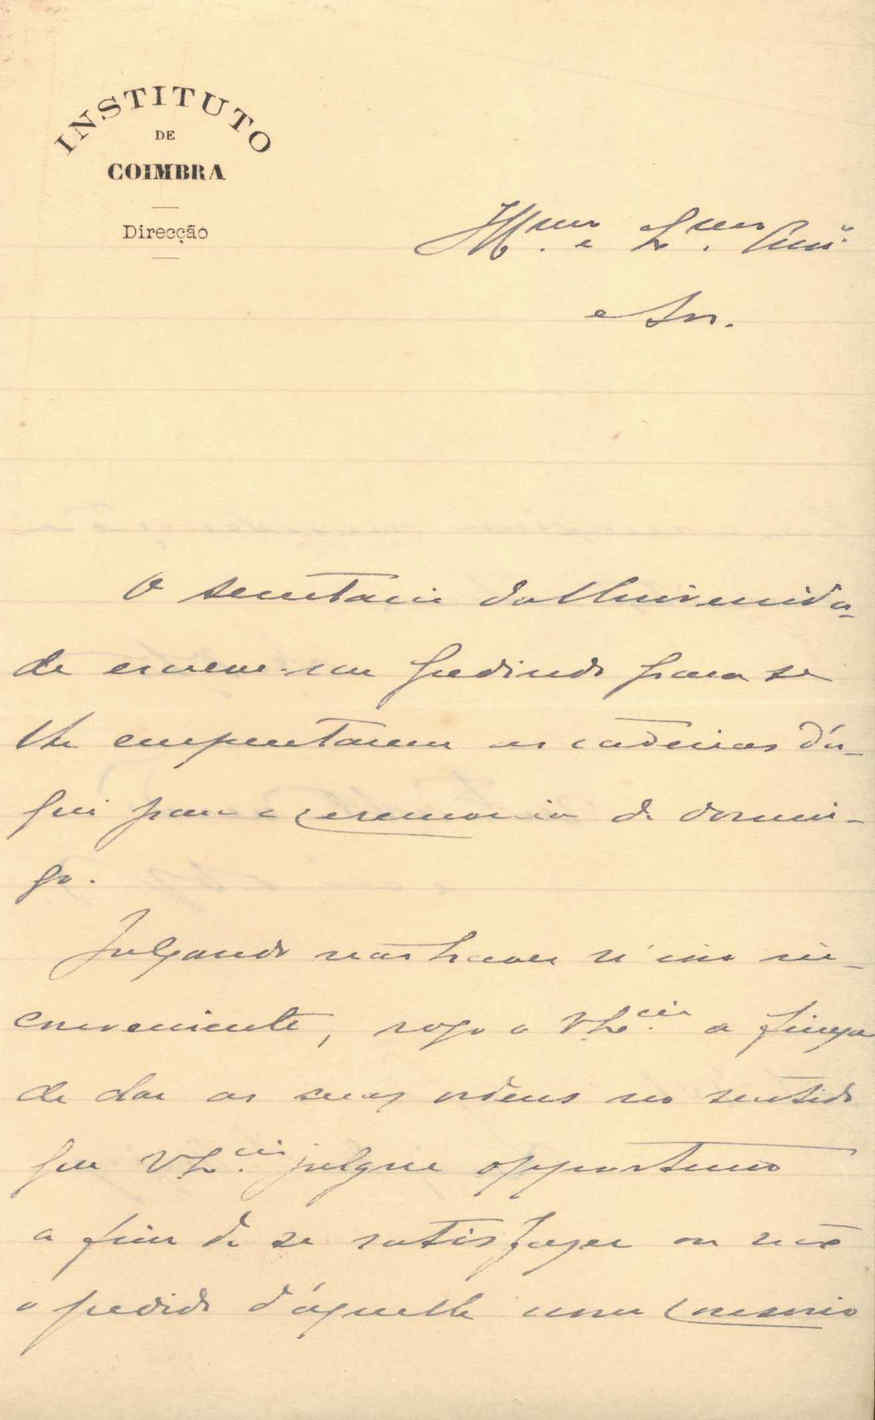 INSTITUTO
DE
COIMBRA
Direcção
Ill.mo e Ex.mo Am.º
e Sr.
O secretario da Universida-
de escreve-me pedindo para se
lhe emprestarem as cadeiras d'a-
qui para a ceremonia de domin-
go.
Julgando não haver n'isso in-
conveniente, rogo a V. Ex.cia a fineza
de dar as suas ordens no sentido
que V. Ex.cia julgue opportuno
a fim de se satisfazer ou não
o pedido d'aquelle nosso consocio